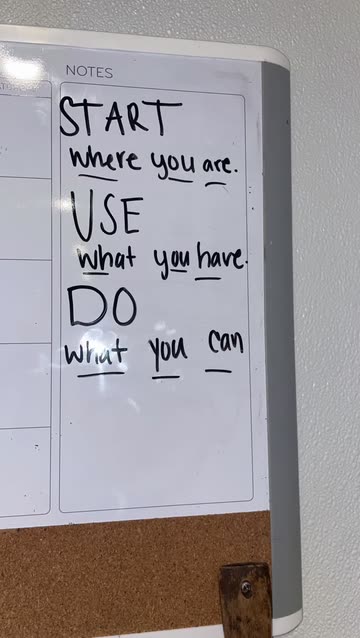 NOTES
START
where you are.
USE
what you have.
DO
what you can